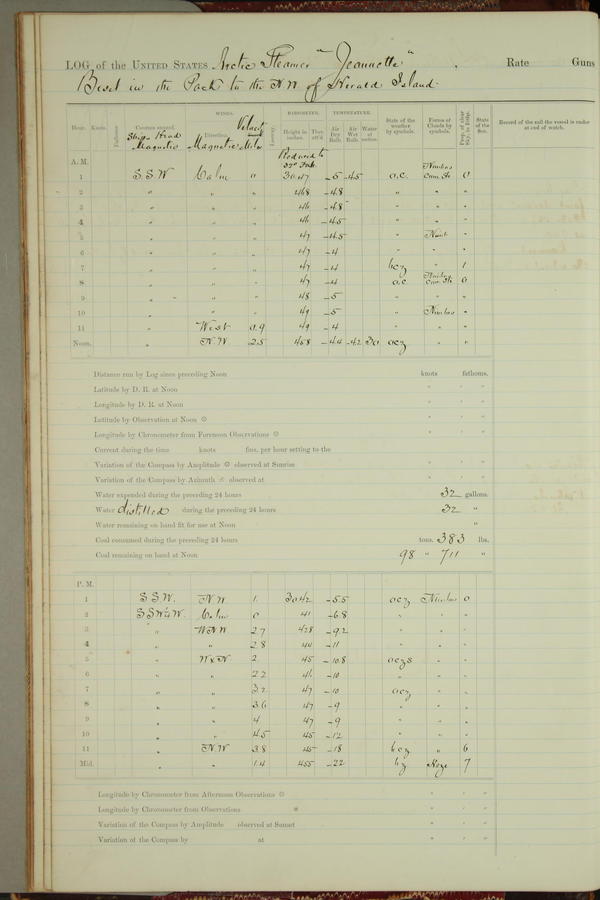 LOG of the UNITED STATES Arctic Steamer "Jeannette", Rate Guns
Beset in the Pack to the N.W. of Herald Island
WINDS. BAROMETER. TEMPERATURE.
Hour. Knots. Fathoms. Courses steered. Ships Head Magnetic Direction. Magnetic Velocity Miles Leeway. Height in inches. Ther. att'd. Air Dry Bulb. Air Wet Bulb. Water at surface. State of the weather by symbols. Forms of Clouds by symbols. Prop. of clear Sky, in 10ths. State of the Sea. Record of the sail the vessel is under at end of watch.
Reduced to 32° Fah.
A. M.
1 S.S.W Calm 0 30.47 -5 -4.5 o.c. Nimbus Cum. St. 0
2 " " " 468 -4.8 " " "
3 " " " 46 -4.8 " " "
4 " " " 46 -4.5 " " "
5 " " " 47 -4.5 " Nimb "
6 " " " 47 -4 " " "
7 " " " 47 -4 bcz " 1
8 " " " 47 -4 o.c Nimbus Cum. St. 0
9 " " " 48 -5 " " "
10 " " " 49 -5 " Nimbus "
11 " West 0.9 49 -4 " " "
Noon. " N.W 2.5 458 -4.4 -4.2 30 ocz " "
Distance run by Log since preceding Noon knots fathoms.
Latitude by D. R. at Noon ° ' "
Longitude by D. R. at Noon ° ' "
Latitude by Observation at Noon ⊙ ° ' "
Longitude by Chronometer from Forenoon Observations ⊙ ° ' "
Current during the time knots fms. per hour setting to the
Variation of the Compass by Amplitude ⊙ observed at Sunrise ° ' "
Variation of the Compass by Azimuth ⊙ observed at ° ' "
Water expended during the preceding 24 hours 32 gallons.
Water distilled during the preceding 24 hours 32 "
Water remaining on hand fit for use at Noon "
Coal consumed during the preceding 24 hours tons. 383 lbs.
Coal remaining on hand at Noon 98 " 711 "
P. M.
1 S.S.W. N.W 1. 30.42 -5.5 ocz Nimbus 0
2 SSW¼W. Calm 0 41 -6.8 " " "
3 " WNW 2.7 428 -9.2 " " "
4 " " 2.8 44 -11 " " "
5 " WxN 2. 45 -10.8 oczs " "
6 " " 2.2 46 -10 " " "
7 " " 3.2 47 -10 ocz " "
8 " " 3.6 47 -9 " " "
9 " " 4 47 -9 " " "
10 " " 4.5 45 -12 " " "
11 " N.W 3.8 45 -18 bcz " 6
Mid. " " 1.4 455 -22 bz Haze 7
Longitude by Chronometer from Afternoon Observations ⊙ ° ' "
Longitude by Chronometer from Observations * ° ' "
Variation of the Compass by Amplitude observed at Sunset ° ' "
Variation of the Compass by at ° ' "